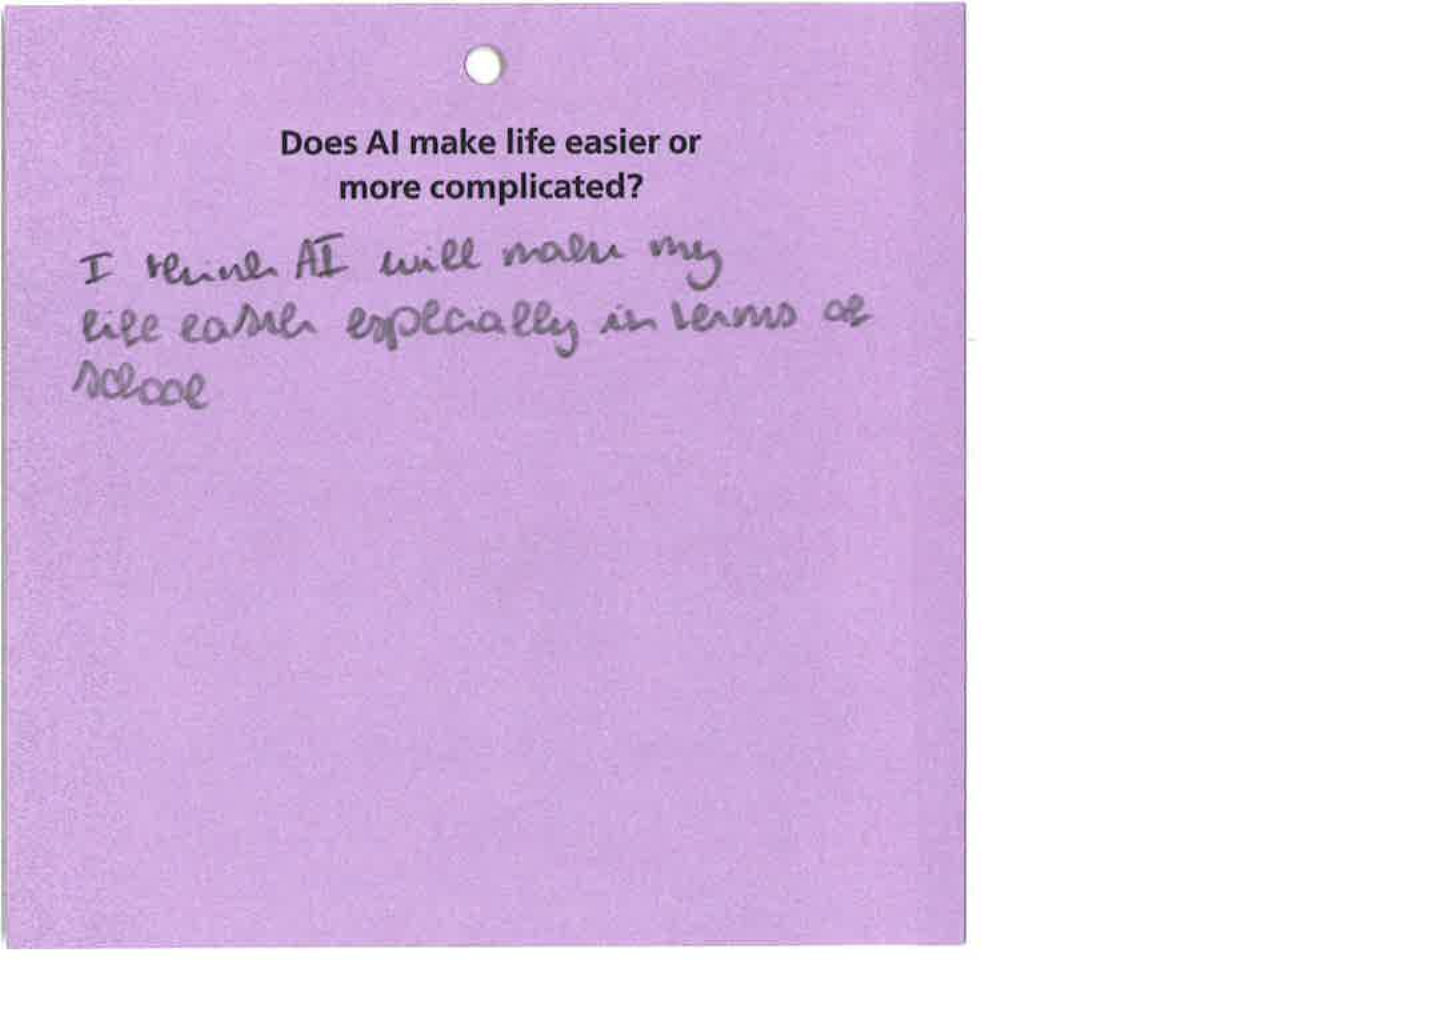 Does AI make life easier or
more complicated?
I think AI will make my
life easier especially in terms of
school